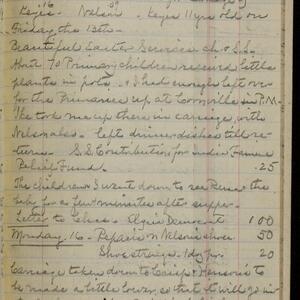 16 39
Keyes - Nelson - Keyes 11 yrs old on
Friday the 13th
Beautiful Easter Services ch & S.S.
About 70 Primary children received little
plants in pots. & I had enough left over
for the Primaries up at in P.M.
Ike took me up there in carriage, with
Nelsnakes - left dinner dishes till re-
turn. S.S. Contribution for India Famine
Relief Fund. - 25
The children & I went down to see the
baby for a few minutes after supper.
Letter to - Elgin Democrat 1 00
Monday, 16 - Repairs on Nelson's shoes 50
Shoestrings 1 doz for 20
Carriage taken down to & Hanson's to
be made a little lower, so that it will go in